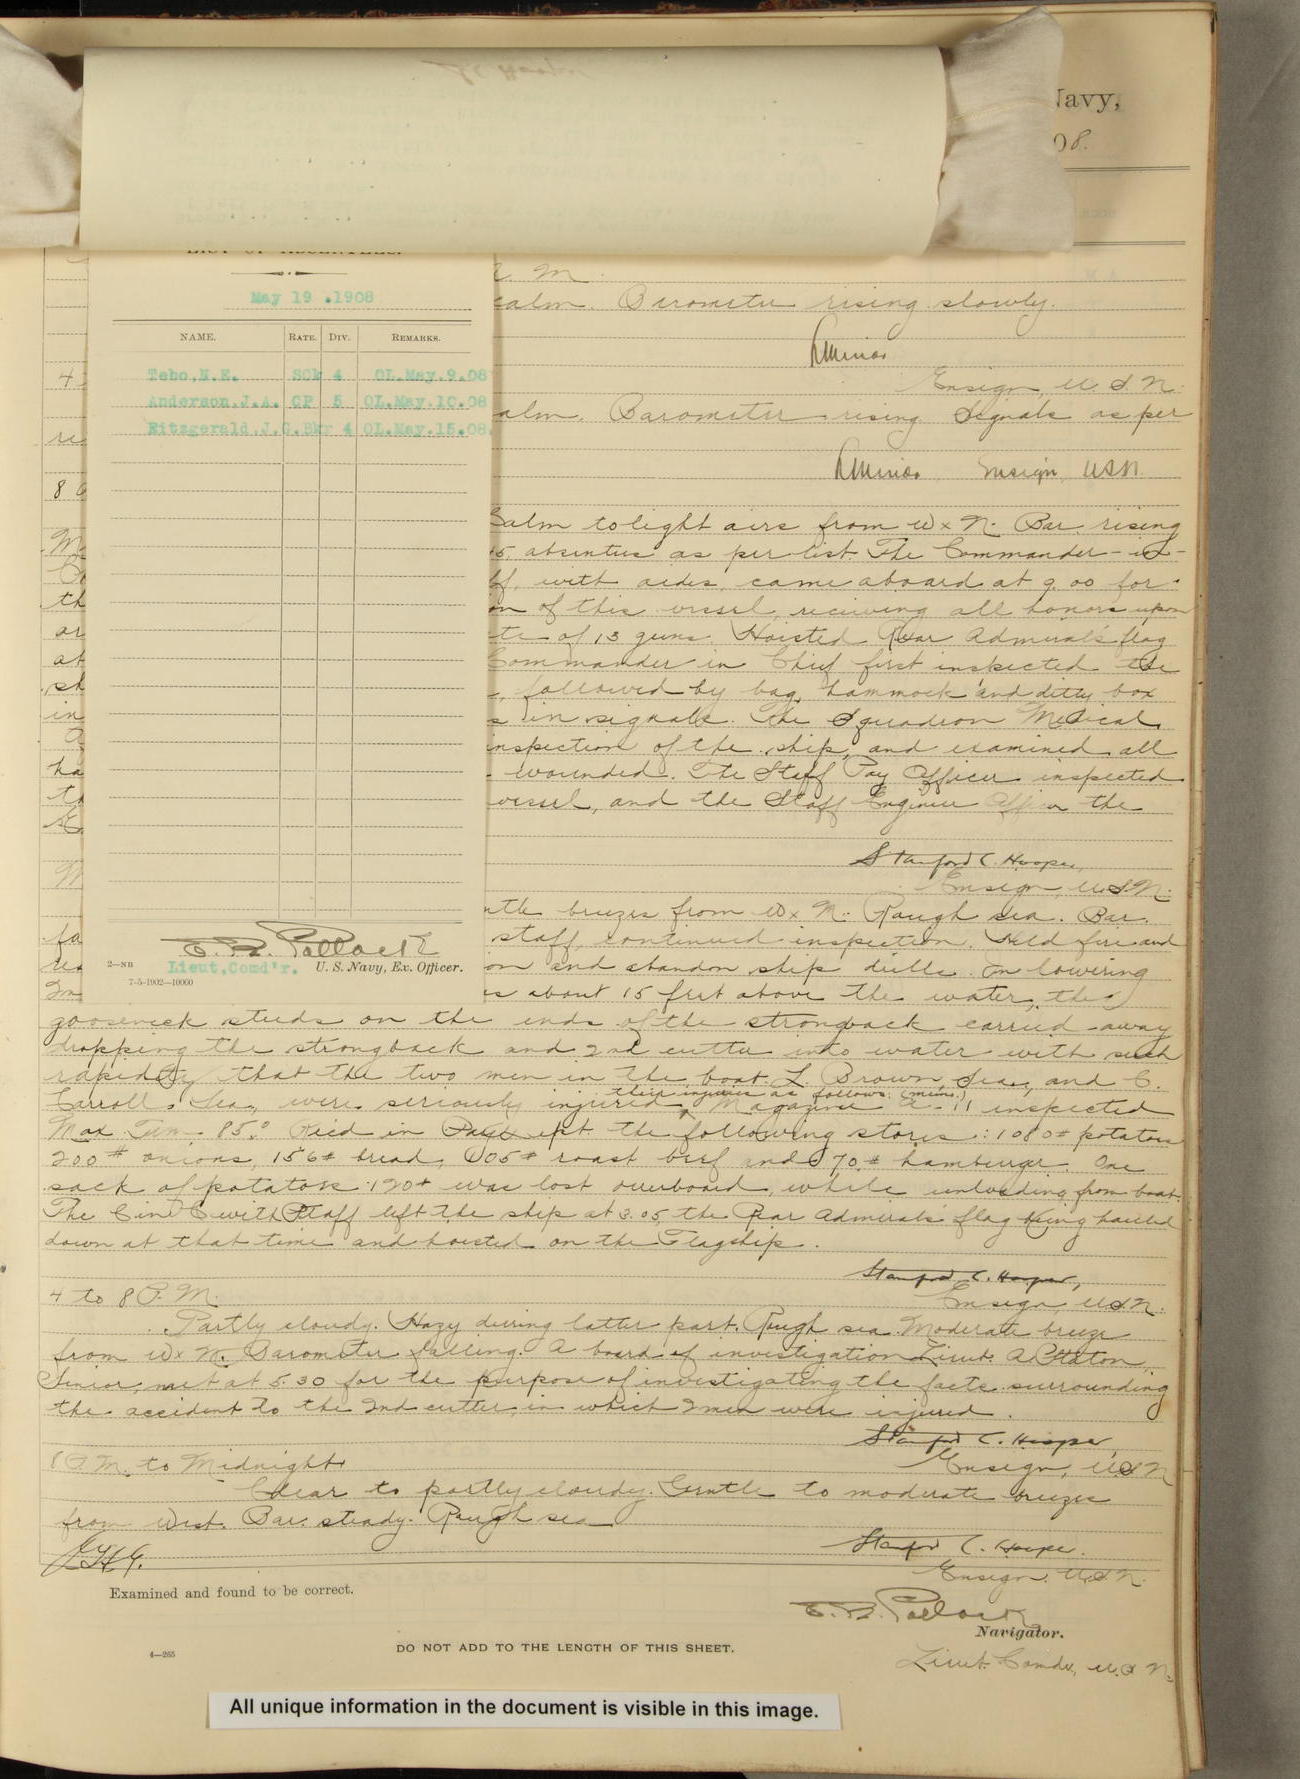 Navy,
08.
LIST OF ABSENTEES.
May 19 .1908
NAME. RATE. DIV. REMARKS.
Tebo,N.E. SCk 4 OL.May.9.08
Anderson.J.A. CP 5 OL.May.10.08
Fitzgerald.J.G.Bkr 4 OL.May.15.08.
E. H. Pollock
Lieut.Comd'r. U. S. Navy, Ex. Officer.
2—NB
7-5-1902—10000
M
calm. Barometer rising slowly.
Ensign U.S.N.
alm. Barometer rising. Signals as per
Ensign, USN
Calm to light airs from W x N. Bar rising
absentees as per list. The Commander-in-
ff, with aides, came aboard at 9.00 for
on of this vessel, receiving all honors upon
te of 13 guns. Hoisted Rear Admiral's flag
Commander in Chief first inspected the
, followed by bag, hammock and ditty box
s in signals. The Squadron Medical
inspection of the ship, and examined all
wounded. The Staff Pay Officer inspected
vessel, and the Staff Engineer Officer the
Stanford C. Hooper,
Ensign, U.S.N.
ntle breezes from W x N. Rough sea. Bar.
staff, continued inspection. Held fire and
on and abandon ship drills. On lowering
about 15 feet above the water, the
gooseneck studs on the ends of the strongback carried away
dropping the strongback and 2nd cutter into water with such
rapidity that the two men in the boat L. Brown, Sea., and C.
Carroll, Sea., were seriously injured, their injuries as follows: Magazine inspected
Max Tem. 85.° Rec'd in Pay Dept. the following stores: 1080# potatoes
200# onions, 156# bread, roast beef and 70# hamburger. One
sack of potatoes 120# was lost overboard, while unloading from boat.
The C in C with Staff left the ship at 3.05, the Rear Admiral's flag being hauled
down at that time and hoisted on the Flagship.
Stanford C. Hooper,
Ensign U.S.N.
4 to 8 P.M.
Partly cloudy. Hazy during latter part. Rough sea. Moderate breeze
from W x N. Barometer falling. A board of investigation Lieut. A. Staton,
Senior, met at 5.30 for the purpose of investigating the facts surrounding
the accident to the 2nd cutter, in which 2 men were injured.
Stanford C. Hooper,
Ensign, U.S.N.
8 P.M. to Midnight
Clear to partly cloudy. Gentle to moderate breezes
from West. Bar. steady. Rough sea
Stanford C. Hooper.
Ensign. U.S.N.
Examined and found to be correct.
E. H. Pollock
Navigator.
Lieut. Comdr, U.S.N.
4—265
DO NOT ADD TO THE LENGTH OF THIS SHEET.
All unique information in the document is visible in this image.